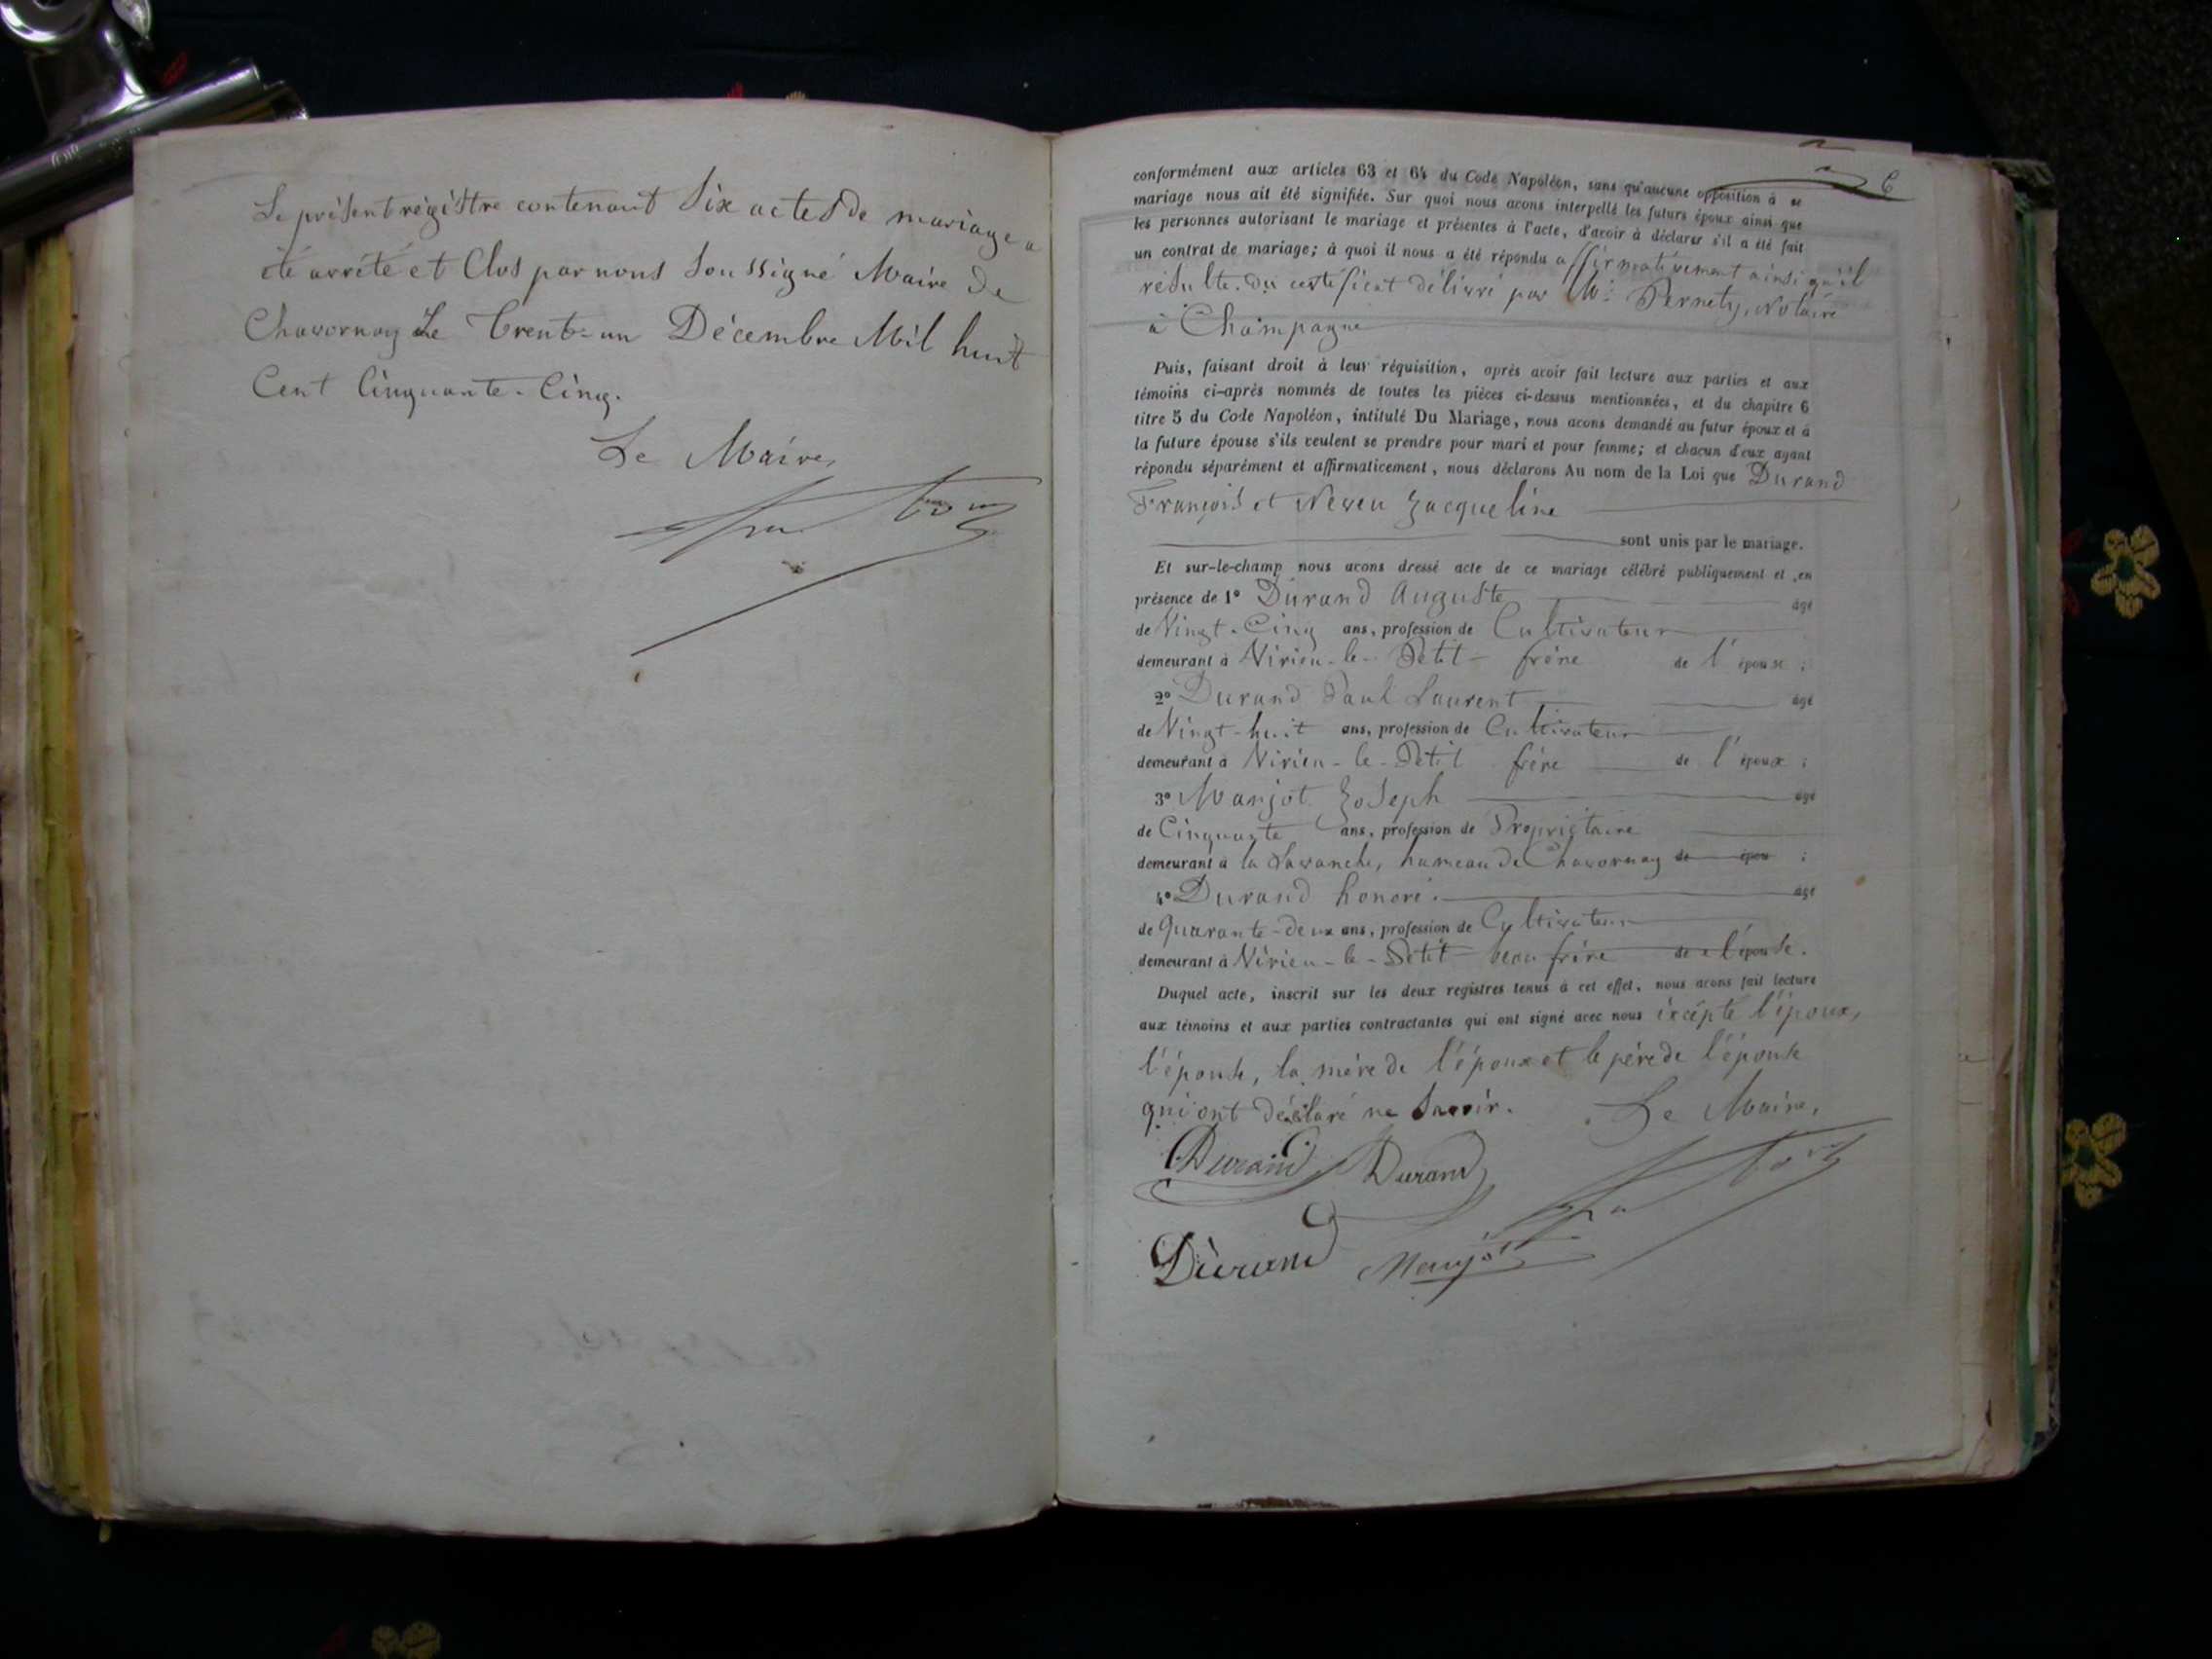 Le présent régistre contenant Six actes de mariage a
été arrêté et Clos par nous Soussigné Maire de
Chavornay Le Trente-un Décembre Mil huit
Cent Cinquante-Cinq.
Le Maire,
6
conformément aux articles 63 et 64 du Code Napoléon, sans qu'aucune opposition à ce
mariage nous ait été signifiée. Sur quoi nous avons interpellé les futurs époux ainsi que
les personnes autorisant le mariage et présentes à l'acte, d'avoir à déclarer s'il a été fait
un contrat de mariage; à quoi il nous a été répondu affirmativement ainsi qu'il
résulte du certificat délivré par Me Pernety, Notaire
à Champagne
Puis, faisant droit à leur réquisition, après avoir fait lecture aux parties et aux
témoins ci-après nommés de toutes les pièces ci-dessus mentionnées, et du chapitre 6
titre 5 du Code Napoléon, intitulé Du Mariage, nous avons demandé au futur époux et à
la future épouse s'ils veulent se prendre pour mari et pour femme; et chacun d'eux ayant
répondu séparément et affirmativement, nous déclarons Au nom de la Loi que Durand
François et Neveu Jacqueline
sont unis par le mariage.
Et sur-le-champ nous avons dressé acte de ce mariage célébré publiquement et en
présence de 1° Durand Auguste âgé
de Vingt-Cinq ans, profession de Cultivateur
demeurant à Virieu-le-Petit frère de l'épouse ;
2° Durand Paul Laurent âgé
de Vingt-huit ans, profession de Cultivateur
demeurant à Virieu-le-Petit frère de l'époux ;
3° Manjot Joseph âgé
de Cinquante ans, profession de Propriétaire
demeurant à la Lavanche, hameau de Chavornay de épou ;
4° Durand honoré. âgé
de Quarante-deux ans, profession de Cultivateur
demeurant à Virieu-le-Petit beau frère de l'épouse.
Duquel acte, inscrit sur les deux registres tenus à cet effet, nous avons fait lecture
aux témoins et aux parties contractantes qui ont signé avec nous éxcépté l'époux,
l'épouse, la mère de l'époux et le père de l'épouse
qui ont déclaré ne Savoir. Le Maire,
Durand Durand
Durand Manjot